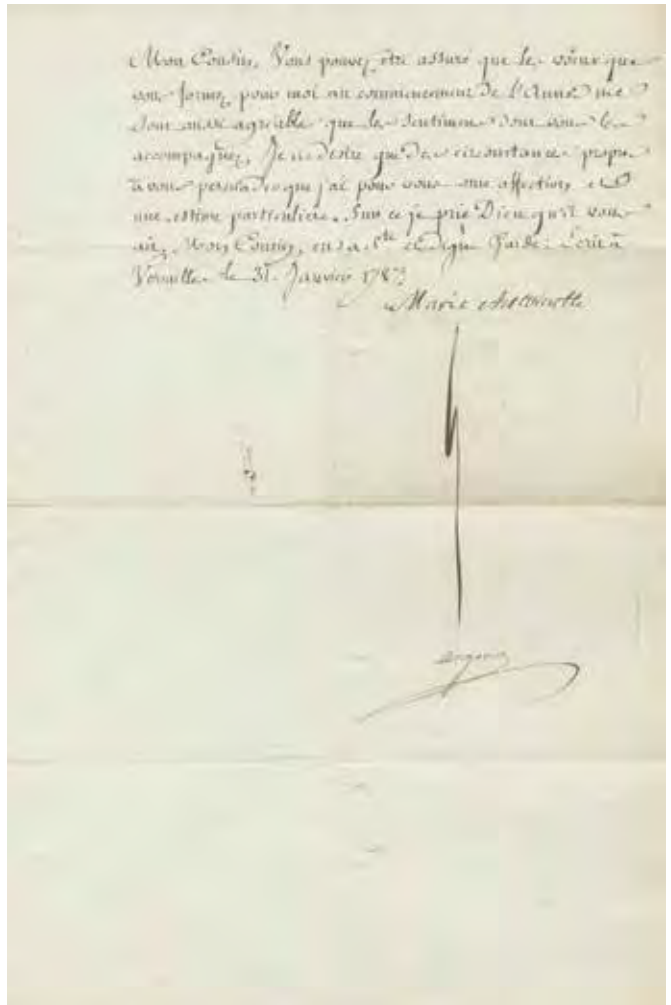 Mon Cousin, Vous pouvez être assuré que les vœux que
vous formez pour moi au commencement de l'Année me
sont aussi agréables que les sentimens dont vous les
accompagnez. Je ne désire que des circonstances propres
à vous persuader que j'ai pour vous une affection et
une estime particulière. Sur ce je prie Dieu qu'il vous
ait, Mon Cousin, en sa Ste et digne Garde. Ecrit à
Versailles le 31. Janvier
Marie Antoinette